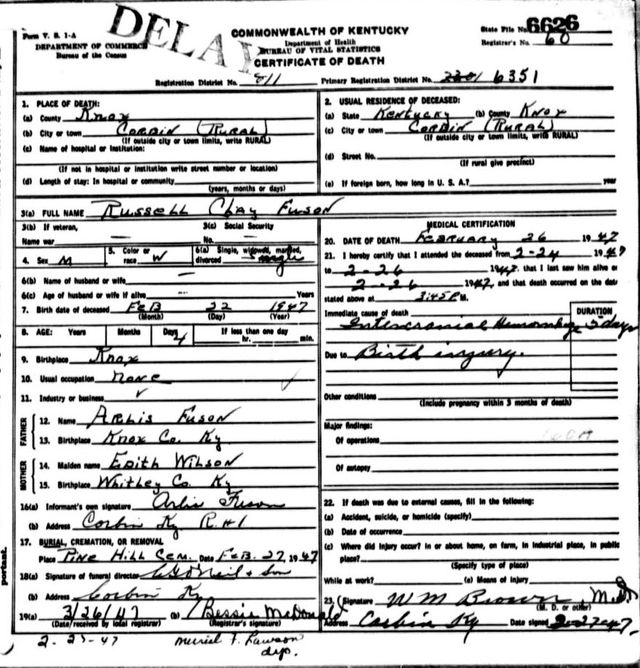 Form V. S. 1-A
DEPARTMENT OF COMMERCE
Bureau of the Census
DELAY
COMMONWEALTH OF KENTUCKY
Department of Health
BUREAU OF VITAL STATISTICS
CERTIFICATE OF DEATH
State File No. 6626
Registrar's No. 60
Registration District No. 811
Primary Registration District No. 2201 6351
1. PLACE OF DEATH:
(a) County Knox
(b) City or town Corbin (Rural)
(If outside city or town limits, write RURAL)
(c) Name of hospital or institution:
(If not in hospital or institution write street number or location)
(d) Length of stay: In hospital or community
(years, months or days)
2. USUAL RESIDENCE OF DECEASED:
(a) State Kentucky (b) County Knox
(c) City or town Corbin (Rural)
(If outside city or town limits, write RURAL)
(d) Street No.
(If rural give precinct)
(e) If foreign born, how long in U. S. A.? year
3(a) FULL NAME Russell Clay Fuson
3(b) If veteran, Name war —
3(c) Social Security No. —
4. Sex M
5. Color or race W
6(a) Single, widowed, married, divorced Single
6(b) Name of husband or wife —
6(c) Age of husband or wife if alive — Years
7. Birth date of deceased Feb 22 1947
(Month) (Day) (Year)
8. AGE: Years Months Days 4 If less than one day hr. min.
9. Birthplace Knox
10. Usual occupation none
11. Industry or business
FATHER
12. Name Arlis Fuson
13. Birthplace Knox Co. Ky.
MOTHER
14. Maiden name Edith Wilson
15. Birthplace Whitley Co. Ky
16(a) Informant's own signature Arlis Fuson
(b) Address Corbin Ky R#1
17. BURIAL, CREMATION, OR REMOVAL
Place Pine Hill Cem. Date Feb-27, 1947
18(a) Signature of funeral director O'Neil & Son
(b) Address Corbin Ky
19(a) 3/26/47 (b) Bessie McDonald
(Date/received by local registrar) (Registrar's signature)
Muriel F. Lawson
dep.
MEDICAL CERTIFICATION
20. DATE OF DEATH February 26 1947
21. I hereby certify that I attended the deceased from 2-24 1947
to 2-26 1947. that I last saw him alive on
2-26 1947, and that death occurred on the date
stated above at 3:45 P.M.
Immediate cause of death
DURATION
Intercranial Hemorrhage 5 days
Due to Birth injury.
Other conditions
(Include pregnancy within 3 months of death)
Major findings:
Of operations
160A
Of autopsy
22. If death was due to external causes, fill in the following:
(a) Accident, suicide, or homicide (specify)
(b) Date of occurrence
(c) Where did injury occur? In or about home, on farm, in industrial place, in public
place?
(Specify type of place)
While at work? (e) Means of injury
23. (Signature W M Brown, M.D.
(M. D. or other)
Address Corbin Ky Date signed 2-27-47
portant.